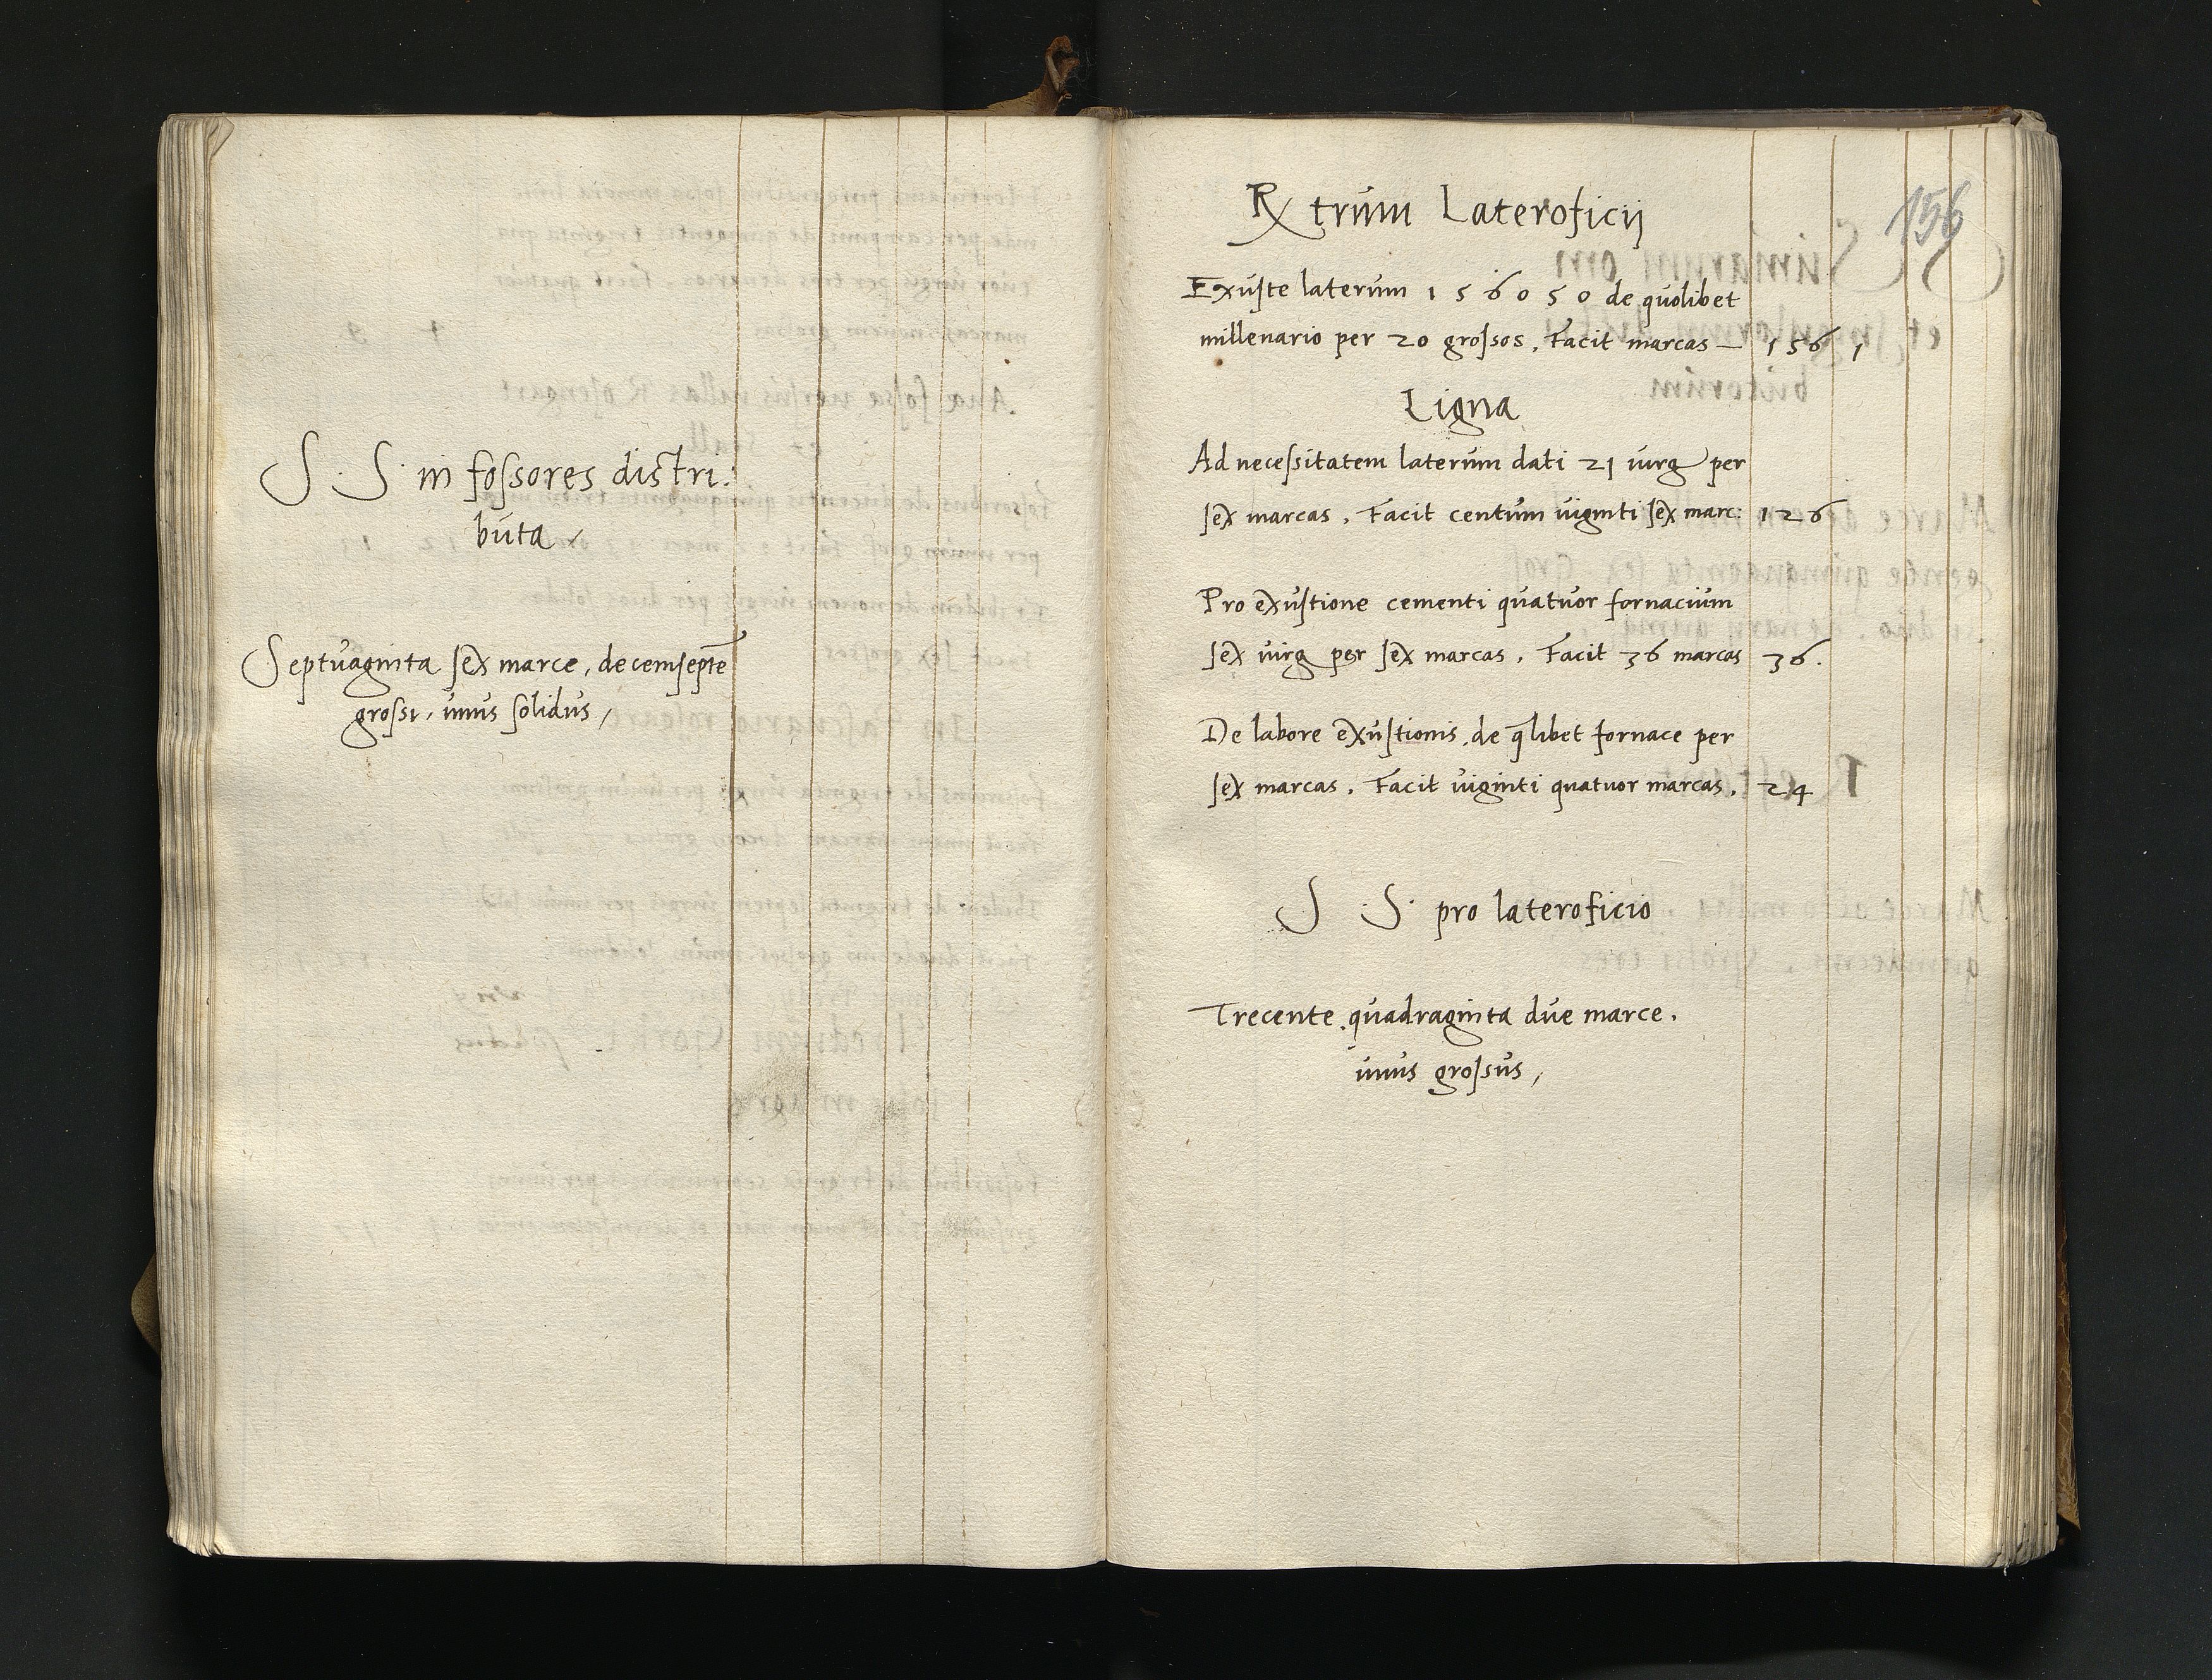 S. S. in fossores distri:
buta
Septuaginta sex marce, decemsepte᷑
grossi, unus solidus,
156
Rx trum Lateroficij
Exuste laterum 156050 de quolibet
millenario per 20 grossos. Facit marcas — 156 1
Ligna
Ad necessitatem laterum dati 21 virg per
sex marcas. Facit centum viginti sex marc: 126
Pro exustione cementi quatuor fornacium
sex virg per sex marcas. Facit 36 marcas 36.
De labore exustionis, de qlibet fornace per
sex marcas. Facit viginti quatuor marcas. 24
S. S. pro lateroficio
Trecente quadraginta due marce.
unus grossus,